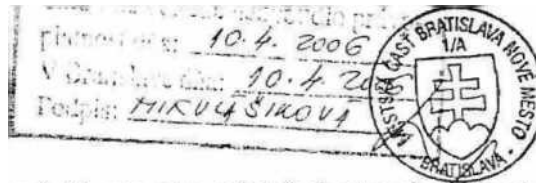 dňa: 10.4.2006
V Bratislave dňa: 10.4.20
Podpis: MIKULÁŠIKOVÁ
MESTSKÁ ČASŤ BRATISLAVA NOVÉ MESTO
1/A
BRATISLAVA